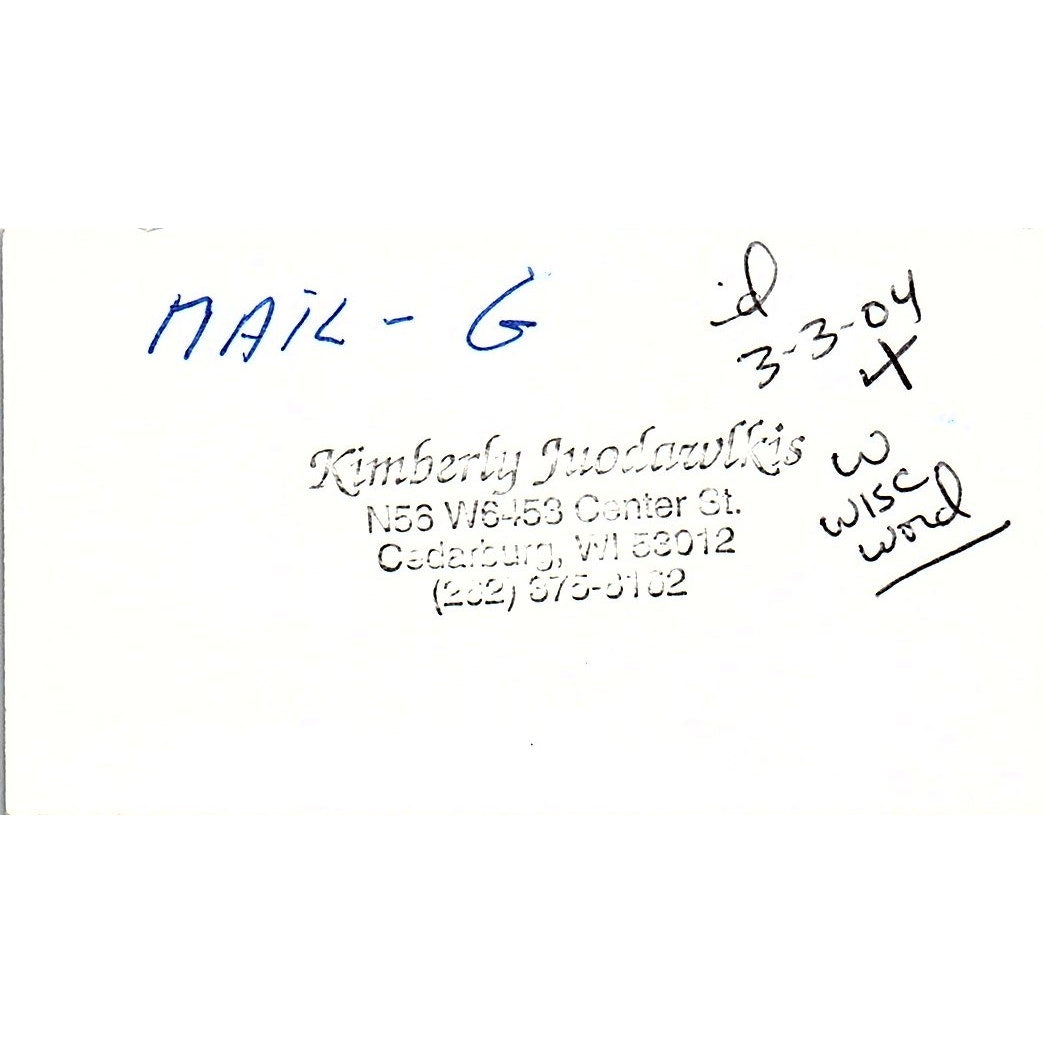 MAIL - G
id
3-3-04
X
Kimberly Juodawlkis
N56 W6453 Center St.
Cedarburg, WI 53012
W
WISC
word